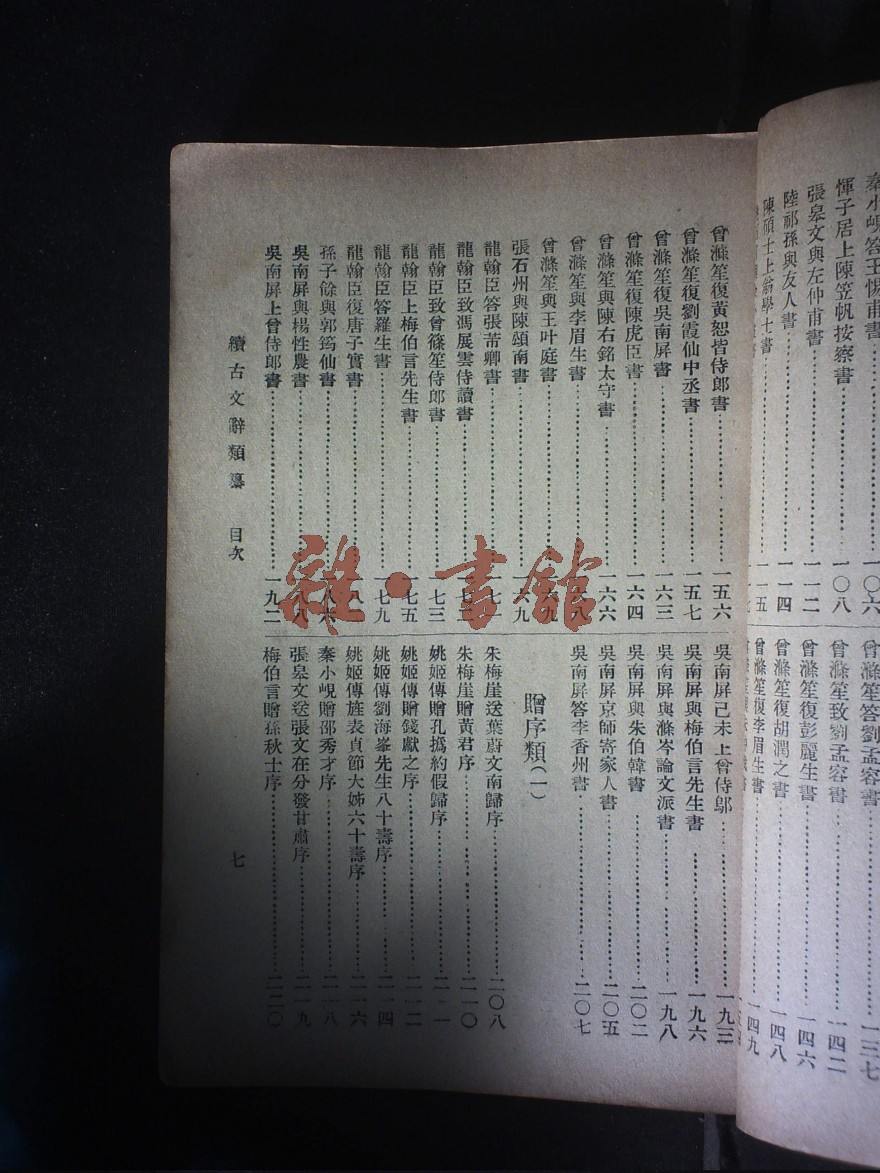 秦小峴答王惕甫書……一〇六
惲子居上陳笠帆按察書……一〇八
張皋文與左仲甫書……一一二
陸祁孫與友人書……一一四
陳碩士上翁學士書……一一五
曾滌笙答劉孟容書……一三七
曾滌笙致劉孟容書……一四二
曾滌笙復彭麗生書……一四六
曾滌笙復胡潤之書……一四八
曾滌笙復李眉生書……一四九
曾滌笙復黃恕皆侍郎書……一五六
曾滌笙復劉霞仙中丞書……一五七
曾滌笙復吳南屏書……一六三
曾滌笙復陳虎臣書……一六四
曾滌笙與陳右銘太守書……一六六
曾滌笙與李眉生書……一六八
曾滌笙與王叶庭書……一六九
張石州與陳頌南書……一六九
龍翰臣答張芾卿書
龍翰臣致馮展雲侍讀書
龍翰臣致曾篠笙侍郎書……一七三
龍翰臣上梅伯言先生書……一七五
龍翰臣答羅生書……一七九
龍翰臣復唐子實書
孫子餘與郭筠仙書……一八六
吳南屏與楊性農書……一八八
吳南屏上曾侍郎書……一九二
吳南屏己未上曾侍郎……一九三
吳南屏與梅伯言先生書……一九六
吳南屏與滌岑論文派書……一九八
吳南屏與朱伯韓書……二〇二
吳南屏京師寄家人書……二〇五
吳南屏答李香州書……二〇七
贈序類（一）
朱梅崖送葉蔚文南歸序……二〇八
朱梅崖贈黃君序……二一〇
姚姬傳贈孔撝約假歸序……二一一
姚姬傳贈錢獻之序……二一二
姚姬傳劉海峯先生八十壽序……二一四
姚姬傳旌表貞節大姊六十壽序……二一六
秦小峴贈邵秀才序……二一八
張皋文送張文在分發甘肅序……二一九
梅伯言贈孫秋士序……二二〇
續古文辭類纂　目次
七
雜·書館